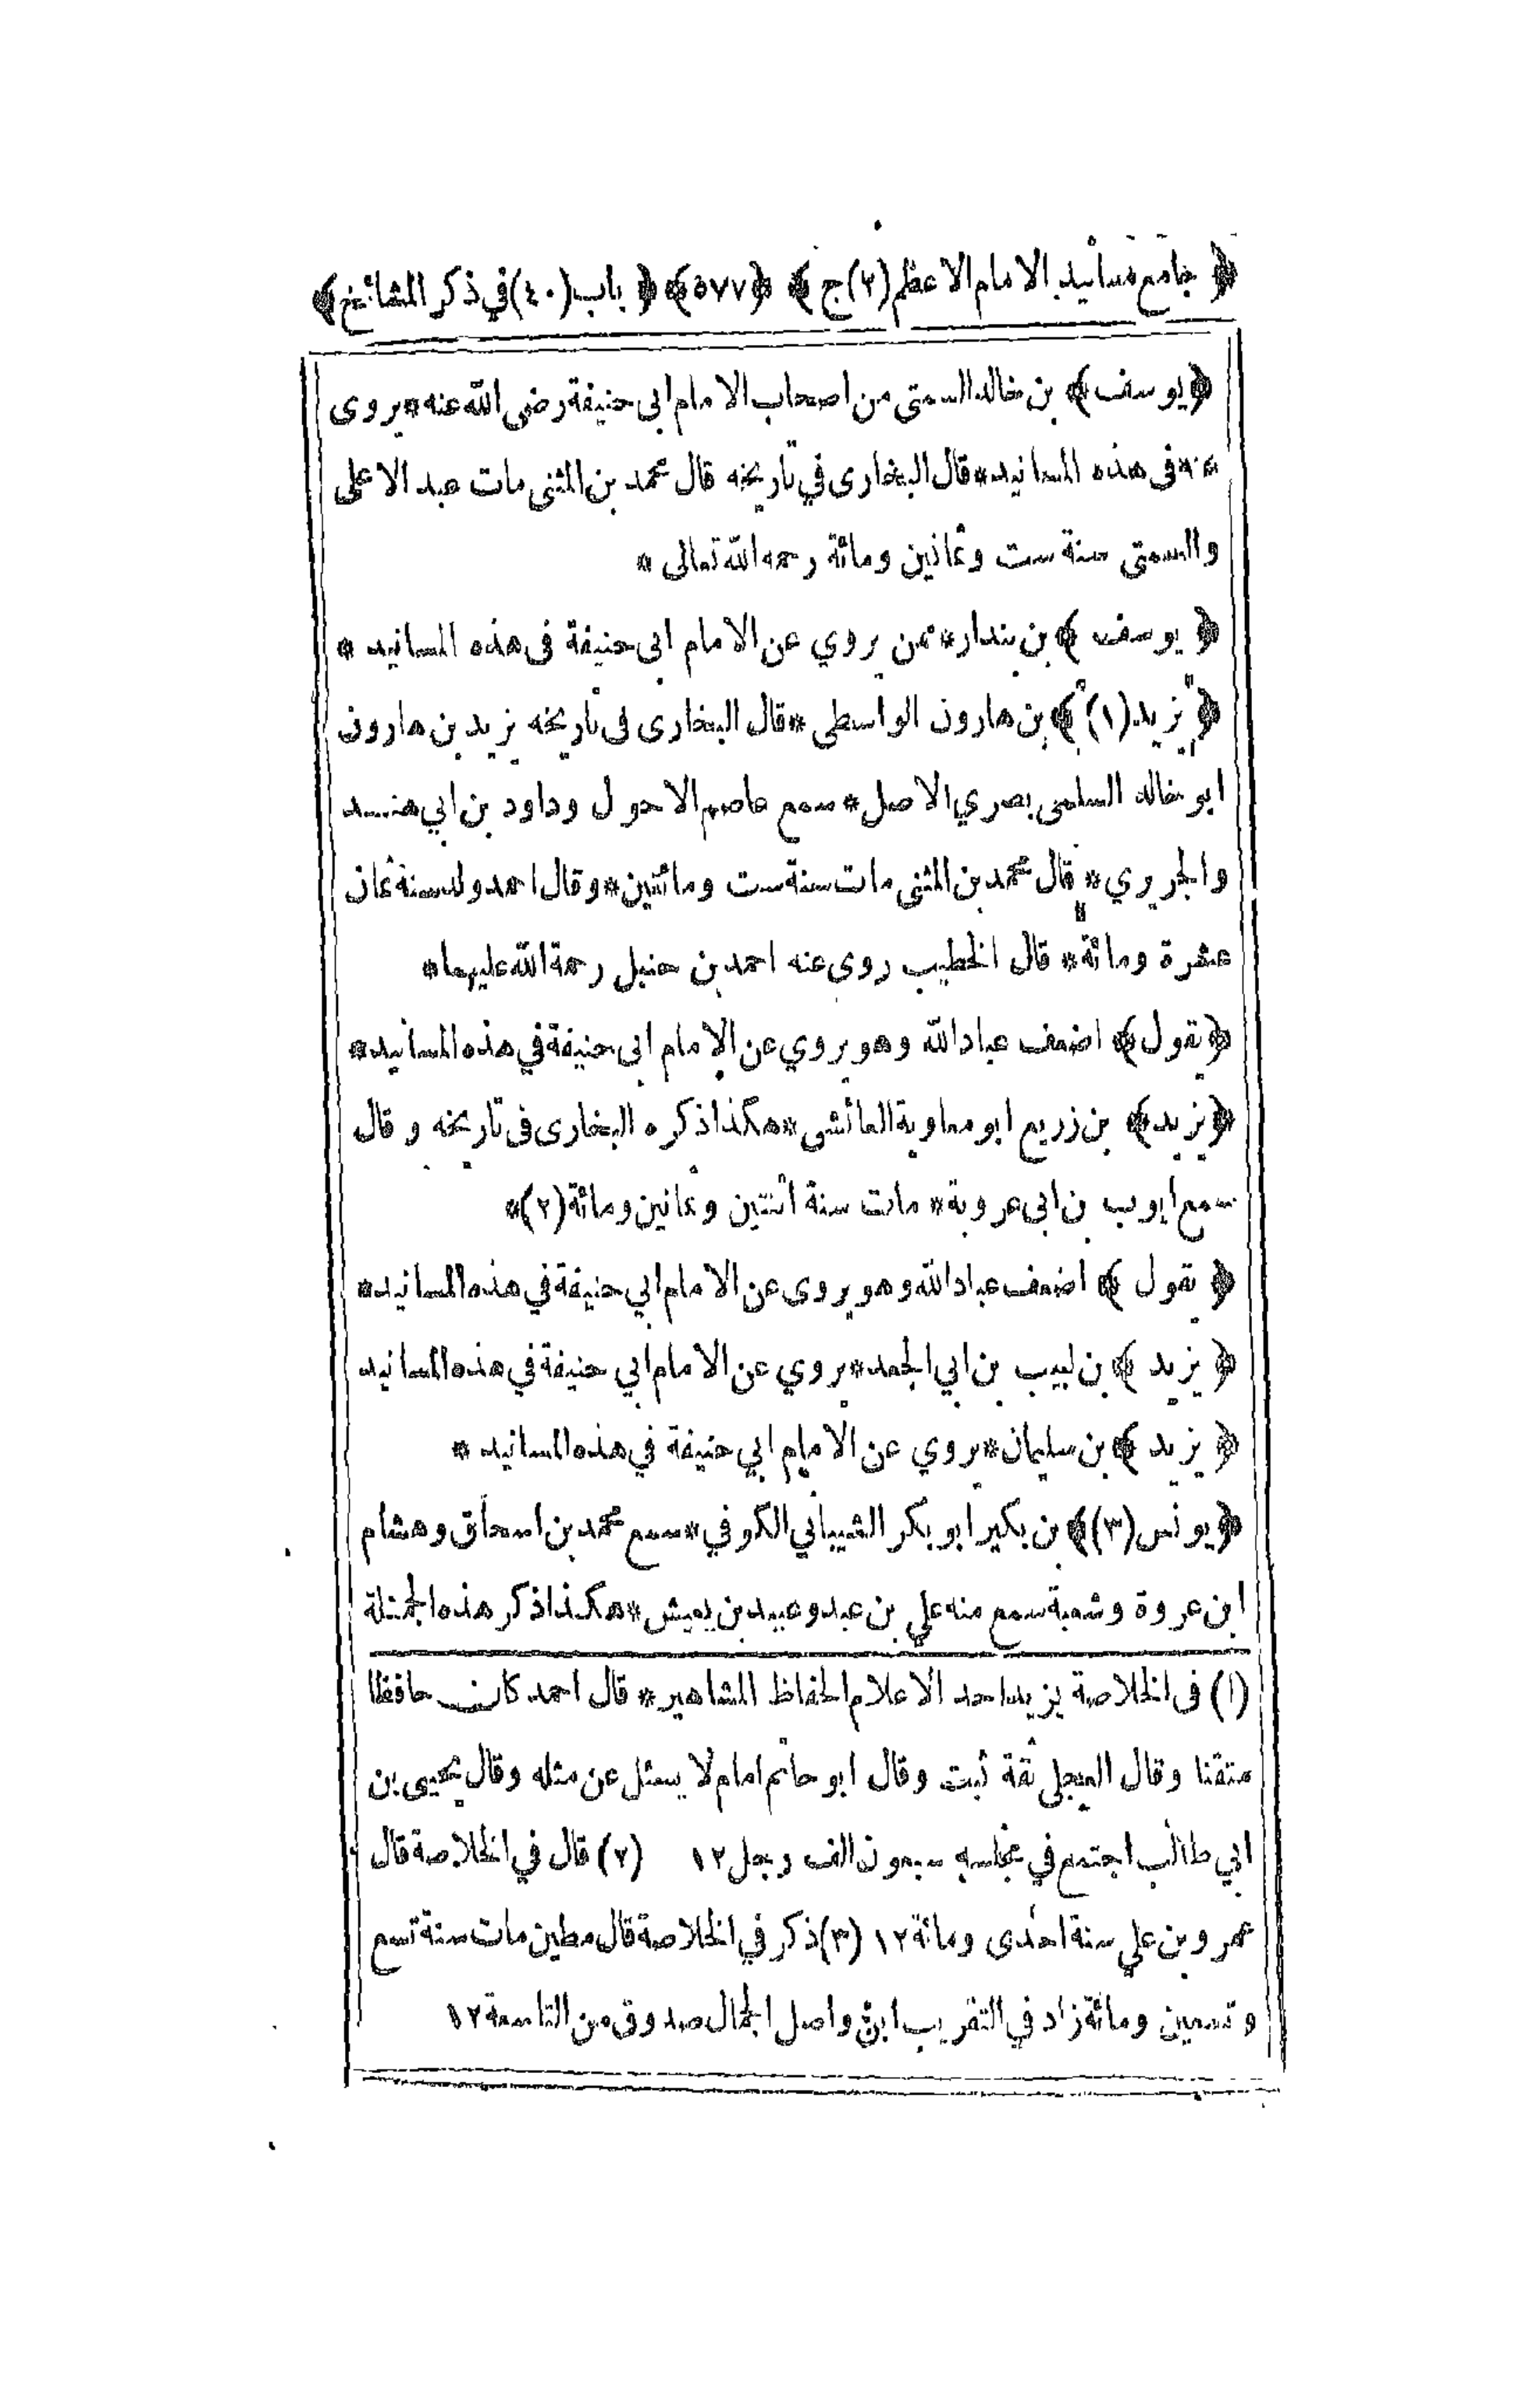 ﴿ جامع مسانيد الامام الاعظم (٢) ج ﴾ ﴿٥٧٧﴾ ﴿ باب (٤٠) في ذكر المشائخ ﴾
﴿يوسف﴾ بن خالد السمتى من اصحاب الامام ابى حنيفة رضى الله عنه * يروى
عنه فى هذه المسانيد * قال البخارى في تاريخه قال محمد بن المثنى مات عبد الاعلى
والسمتى سنة ست وثمانين ومائة رحمه الله تعالى *
﴿ يوسف ﴾ بن بندار * ممن يروي عن الامام ابى حنيفة فى هذه المسانيد *
﴿ يزيد (١) ﴾ بن هارون الواسطى * قال البخارى فى تاريخه يزيد بن هارون
ابو خالد السلمى بصري الاصل * سمع عاصم الاحول وداود بن ابي هنــد
والجريري * قال محمد بن المثنى مات سنة ست ومائتين * وقال احمد ولد سنة ثمان
عشرة ومائة * قال الخطيب روى عنه احمد بن حنبل رحمة الله عليهما *
﴿يقول﴾ اضعف عباد الله وهو يروي عن الامام ابى حنيفة في هذه المسانيد *
﴿يزيد﴾ بن زريع ابو معاوية العائشى * هكذا ذكره البخارى فى تاريخه وقال
سمع ايوب بن ابى عروبة * مات سنة اثنتين وثمانين ومائة (٢) *
﴿ يقول ﴾ اضعف عباد الله وهو يروى عن الامام ابي حنيفة في هذه المسانيد *
﴿ يزيد ﴾ بن لبيب بن ابي الجعد * يروي عن الامام ابي حنيفة في هذه المسانيد
﴿ يزيد ﴾ بن سليمان * يروي عن الامام ابي حنيفة في هذه المسانيد *
﴿يونس (٣)﴾ بن بكير ابو بكر الشيباني الكوفي * سمع محمد بن اسحاق وهشام
ابن عروة وشعبة سمع منه علي بن عبد وعبيد بن يعيش * هكذا ذكر هذه الجملة
(١) فى الخلاصة يزيد احد الاعلام الحفاظ المشاهير * قال احمد كان حافظا
متقنا وقال العجلى ثقة ثبت وقال ابو حاتم امام لا يسئل عن مثله وقال يحيى بن
ابي طالب اجتمع في مجلسه سبعون الف رجل ١٢ (٢) قال في الخلاصة قال
عمرو بن علي سنة احدى ومائة ١٢ (٣) ذكر في الخلاصة قال مطين مات سنة تسع
وتسعين ومائة زاد في التقريب ابن واصل الجمال صدوق من التاسعة ١٢